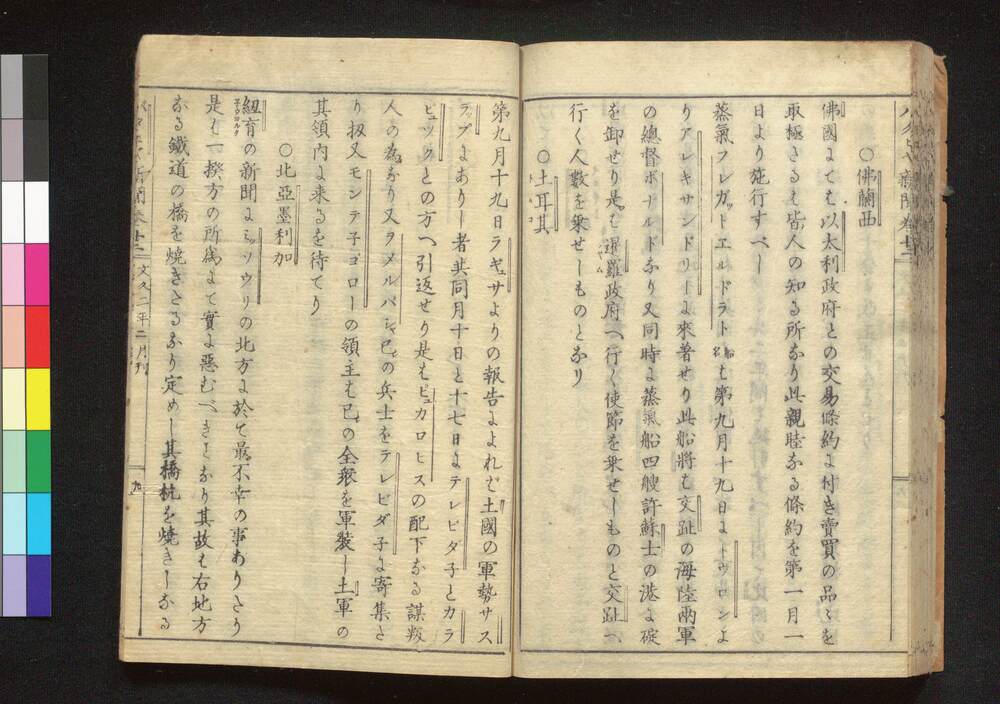 ○佛蘭西
佛國にても以太利政府との交易條約に付き賣買の品々を
取極さるは皆人の知る所なり此親睦なる條約を第一月一
日より施行すべし
蒸氣フレガットエルドラト船名は第九月十九日にトウロンよ
りアレキサンドリーに來着せり此船將は交趾の海陸兩軍
の總督ボナルドなり又同時に蒸氣船四艘許蘇士の港に碇
を卸せり是は暹羅政府へ行く使節を乗せしものと交趾へ
行く人數を乗せしものとなり
○土耳其
第九月十九日ラギュサよりの報告によれば土國の軍勢サス
ラッブにありし者其同月十日と十七日にテレビダ子とカラ
ビュックとの方へ引返せり是はビュカロヒスの配下なる謀叛
人の為なり又ヲメルパシャ已の兵士をテレビダ子に寄集た
り扨又モンテ子ゴローの領主は已の全衆を軍裝し土軍の
其領内に来るを待てり
○北亞墨利加
紐育の新聞にミッソウリの北方に於て最不幸の事ありたり
是は一揆方の所為にて實に惡むべきとなり其故は右地方
なる鐵道の橋を焼きたるなり定めし其橋杭を焼きしなる
文久二年二月刊
九